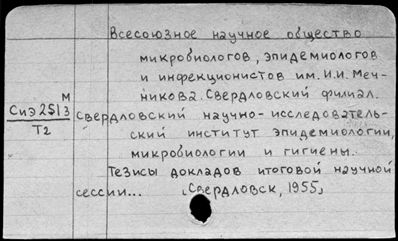 Всесоюзное научное общество
микробиологов, эпидемиологов
и инфекционистов им. И.И. Меч-
никова. Свердловский филиал.
М
СиЭ 2513
Т2
Свердловский научно-исследователь-
ский институт эпидемиологии,
микробиологии и гигиены.
Тезисы докладов итоговой научной
сессии... [Свердловск, 1955]